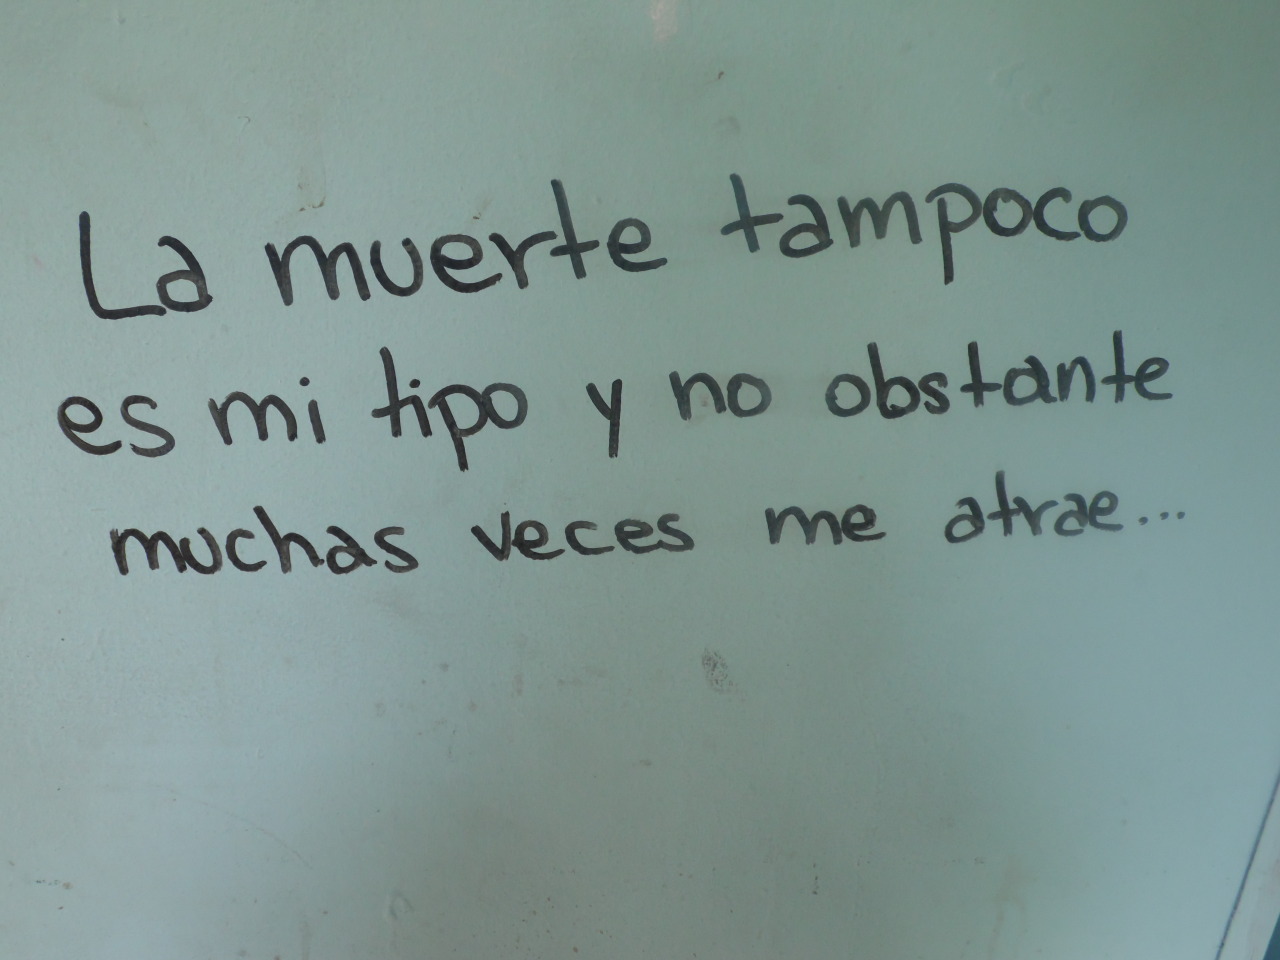 La muerte tampoco
es mi tipo y no obstante
muchas veces me atrae...